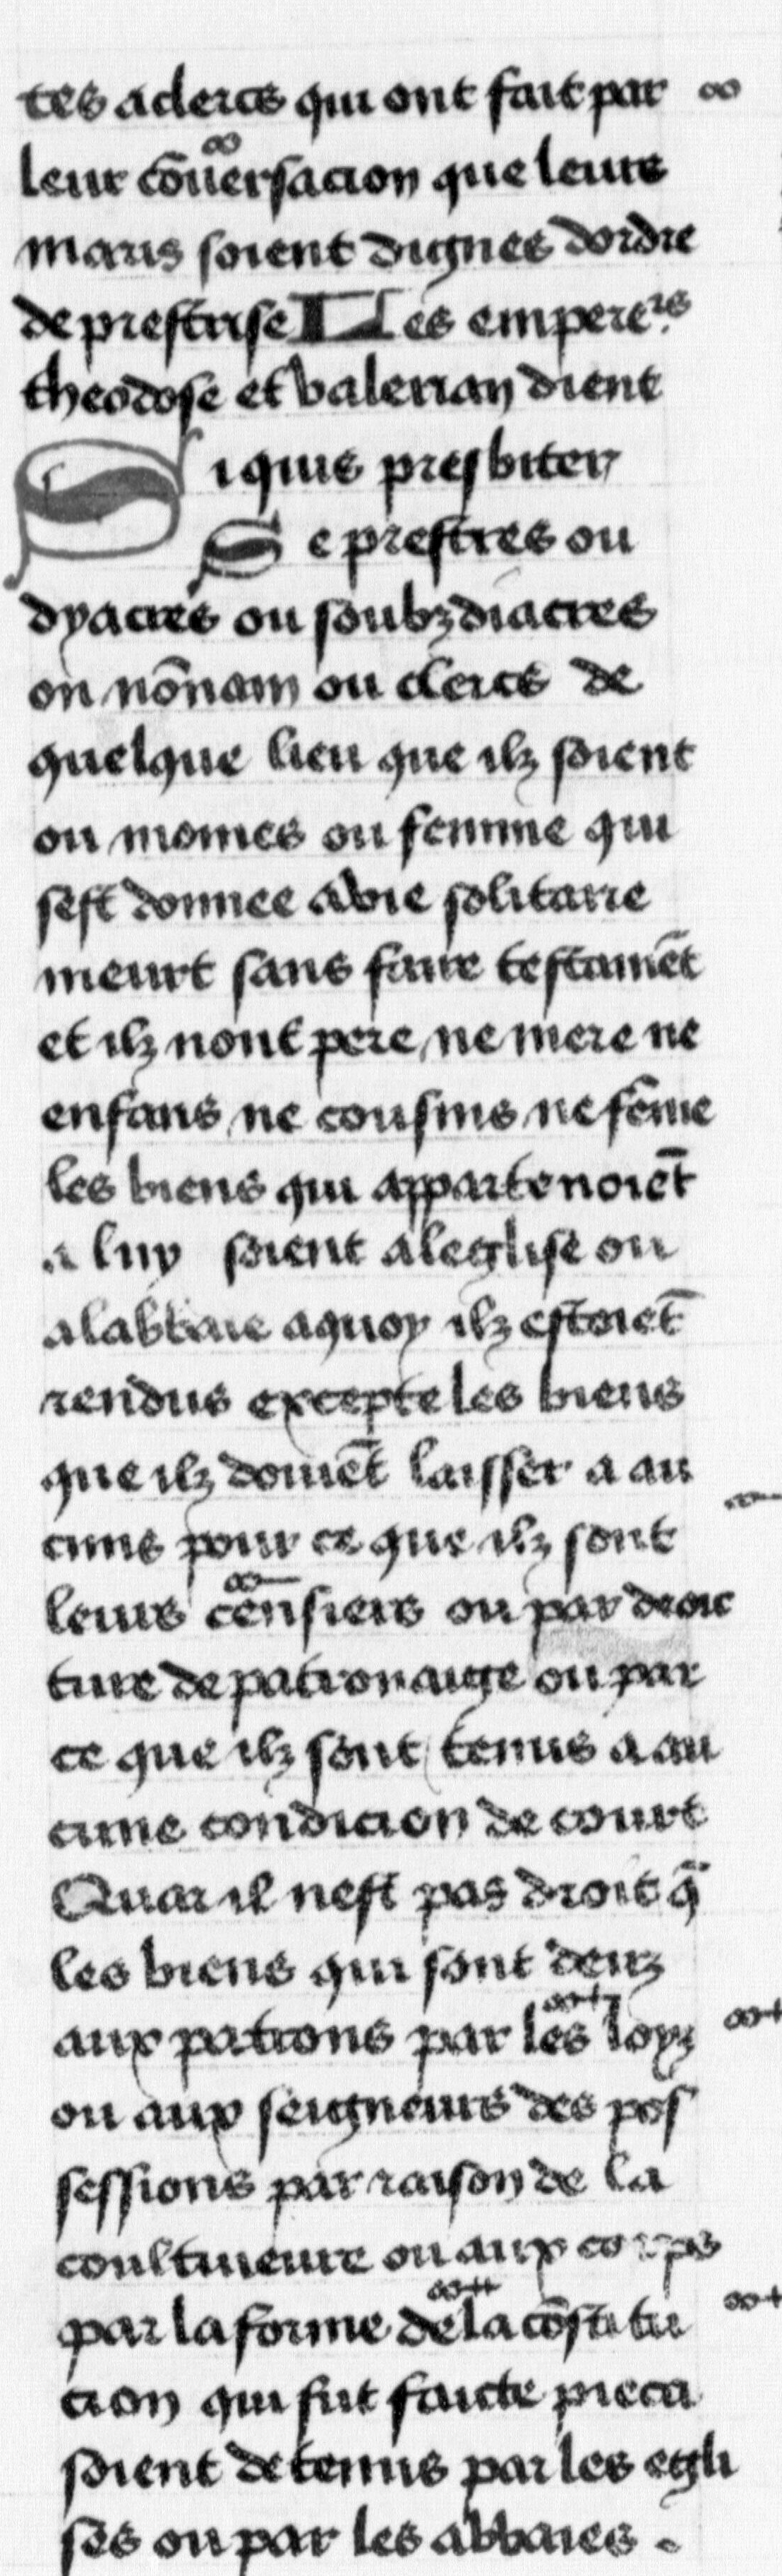 tes a clercs qui ont fait par
leur cōuersacion que leurs
maris soient dignes dordre
de prestrise Les empere.rs
theodose et valerian dient
Si quis presbiter
Se prestres ou
dyacres ou soubzdiacres
ou nōnam ou clercs de
quelque lieu que ilz soient
ou moines ou femme qui
sest donnee a vie solitaire
meurt sans faire testamēt
et ilz nont pere ne mere ne
enfans ne cousins ne fēme
les biens qui appartenoiēt
a luy soient a leglise ou
a labbaie a quoy ilz estoiēt
rendus excepte les biens
que ilz doiuēt laisser a au
cuns pour ce que ilz sont
leurs cēnsiers ou par droic
ture de patronaige ou par
ce que ilz sont tenus a au
cune condicion de court
Quar il nest pas droit q̄
les biens qui sont deuz
aux patrons par les loyz
ou aux seigneurs des pos
sessions par raison de la
coultiueure ou aux corps
par la forme de la cōstitu
cion qui fut faicte pieca
soient detenus par les egli
ses ou par les abbaies .